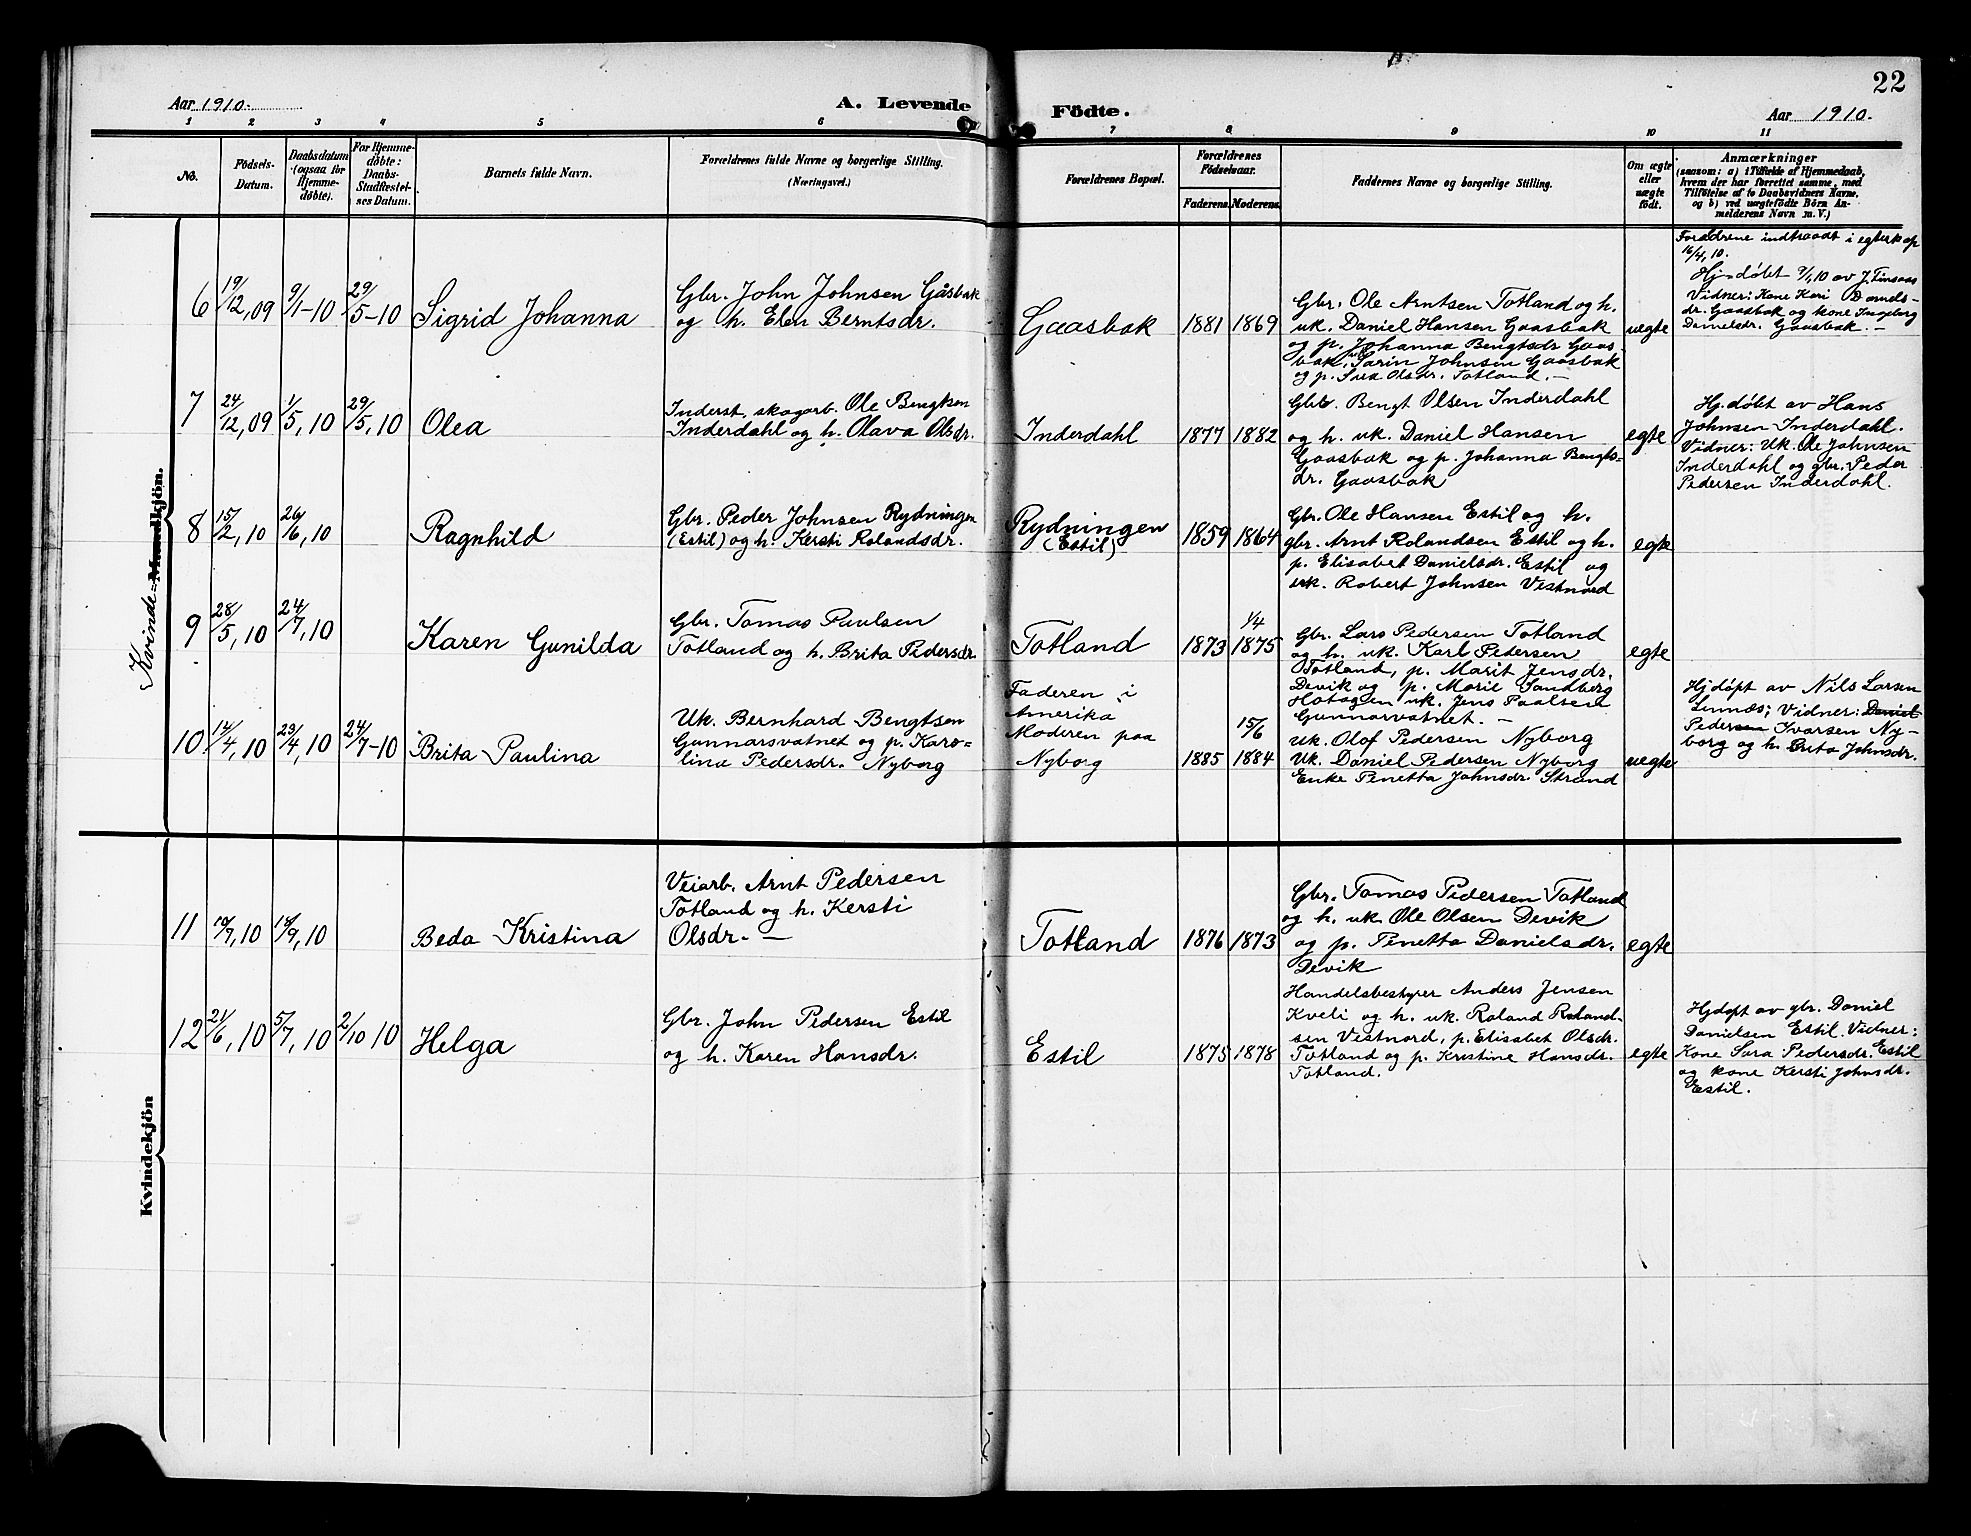 22
Aar 1910.
A. Levende Födte.
Aar 1910.
1 2 3 4 5 6 7 8 9 10 11
No.
Födsels-Datum.
Daabsdatum (ogsaa for Hjemme-döbte).
For Hjemme-döbte: Daabs-Stadfæstel-ses Datum.
Barnets fulde Navn.
Forældrenes fulde Navne og borgerlige Stilling.
(Næringsvei.)
Forældrenes Bopæl.
Forældrenes Födselsaar.
Faderens. Moderens.
Faddernes Navne og borgerlige Stilling.
Om ægte eller uægte födt.
Anmærkninger
(saasom: a) i Tilfælde af Hjemmedaab,
hvem der har forrettet samme, med
Tilföielse af to Daabsvidners Navne,
og b) ved uægtefödte Börn An-
melderens Navn m. V.)
Kvinde-Mandkjön.
6
19/12, 09
9/1-10
29/5-10
Sigrid Johanna
Gbr. John Johnsen Gåsbak
og h. Elen Berntsdr.
Gaasbak
1881
1869
Gbr. Ole Arntsen Totland og h.
uk. Daniel Hansen Gaasbak
og p. Johanna Bengtsdr Gaas-
bak, Johnsen Gaasbak
og p. Olsdr. Totland. -
uegte
Forældrene indtraadt i egtesk ap
16/4, 10.
Hj-døbt 9/1, 10 av J. Tinsaas
Vidner: Kone Kari
dr. Gaasbak og kone Ingeborg
Danielsdr. Gaasbak. -
7
24/12, 09
1/5, 10
29/5, 10
Olea
Inderst, skogarb. Ole Bengtsen
Inderdahl og h. Olava Olsdr.
Inderdahl
1877
1882
Gbr. Bengt Olsen Inderdahl
og h. uk. Daniel Hansen
Gaasbak og p. Johanna Bengts-
dr. Gaasbak
egte
Hj.døbt av Hans
Johnsen Inderdahl.
Vidner: Uk. Ole Johnsen
Inderdahl og gbr. Peder
Pedersen Inderdahl.
8
15/2, 10
26/6, 10
Ragnhild
Gbr. Peder Johnsen Rydningen
(Estil) og h. Kersti Rolandsdr.
Rydningen
(Estil)
1859
1864
Gbr. Ole Hansen Estil og h.
gbr. Arnt Rolandsen Estil og h.
p. Elisabet Danielsdr. Estil og
uk. Robert Johnsen Vestnord
egte
9
28/5, 10
24/7, 10
Karen Gunilda
Gbr. Tomas Paulsen
Totland og h. Brita Pedersdr.
Totland
1873
1/4
1875
Gbr. Lars Pedersen Totland
og h. uk. Karl Pedersen
Totland, p. Marit Jensdr.
Devik og p. Marie Sandberg
Hotagen uk. Jens Paalsen
Gunnarvatnet. -
egte
10
14/4, 10
23/4, 10
24/7-10
Brita Paulina
Uk. Bernhard Bengtsen
Gunnarsvatnet og p. Karo-
line Pedersdr. Nyborg
Faderen i
Amerika
Moderen paa
Nyborg
1885
15/6
1884
Uk. Olof Pedersen Nyborg
Uk. Daniel Pedersen Nyborg
Enke Penetta Johnsdr. Strand
uegte
Hjdøpt av Nils Larsen
Linnæs; Vidner: Daniel
Pedersen Ivarsen Ny-
borg og h. Brita Johnsdr.
Kvindekjön
11
19/7, 10
18/9, 10
Beda Kristina
Veiarb. Arnt Pedersen
Totland og h. Kersti
Olsdr. -
Totland
1876
1873
Gbr. Tomas Pedersen Totland
og h. uk. Ole Olsen Devik
og p. Penetta Danielsdr.
Devik
egte
12
21/6, 10
5/7, 10
2/10 10
Helga
Gbr. John Pedersen Estil
og h. Karen Hansdr.
Estil
1875
1878
Handelsbestyrer Anders Jensen
Kveli og h. uk. Roland Roland-
sen Vestnord, p. Elisabet Olsdr.
Totland og p. Kristine Hansdr.
Totland.
egte
Hjdøpt av gbr. Daniel
Danielsen Estil. Vidner:
Kone Sara Pedersdr. Estil
og kone Kersti Johnsdr.
Estil.